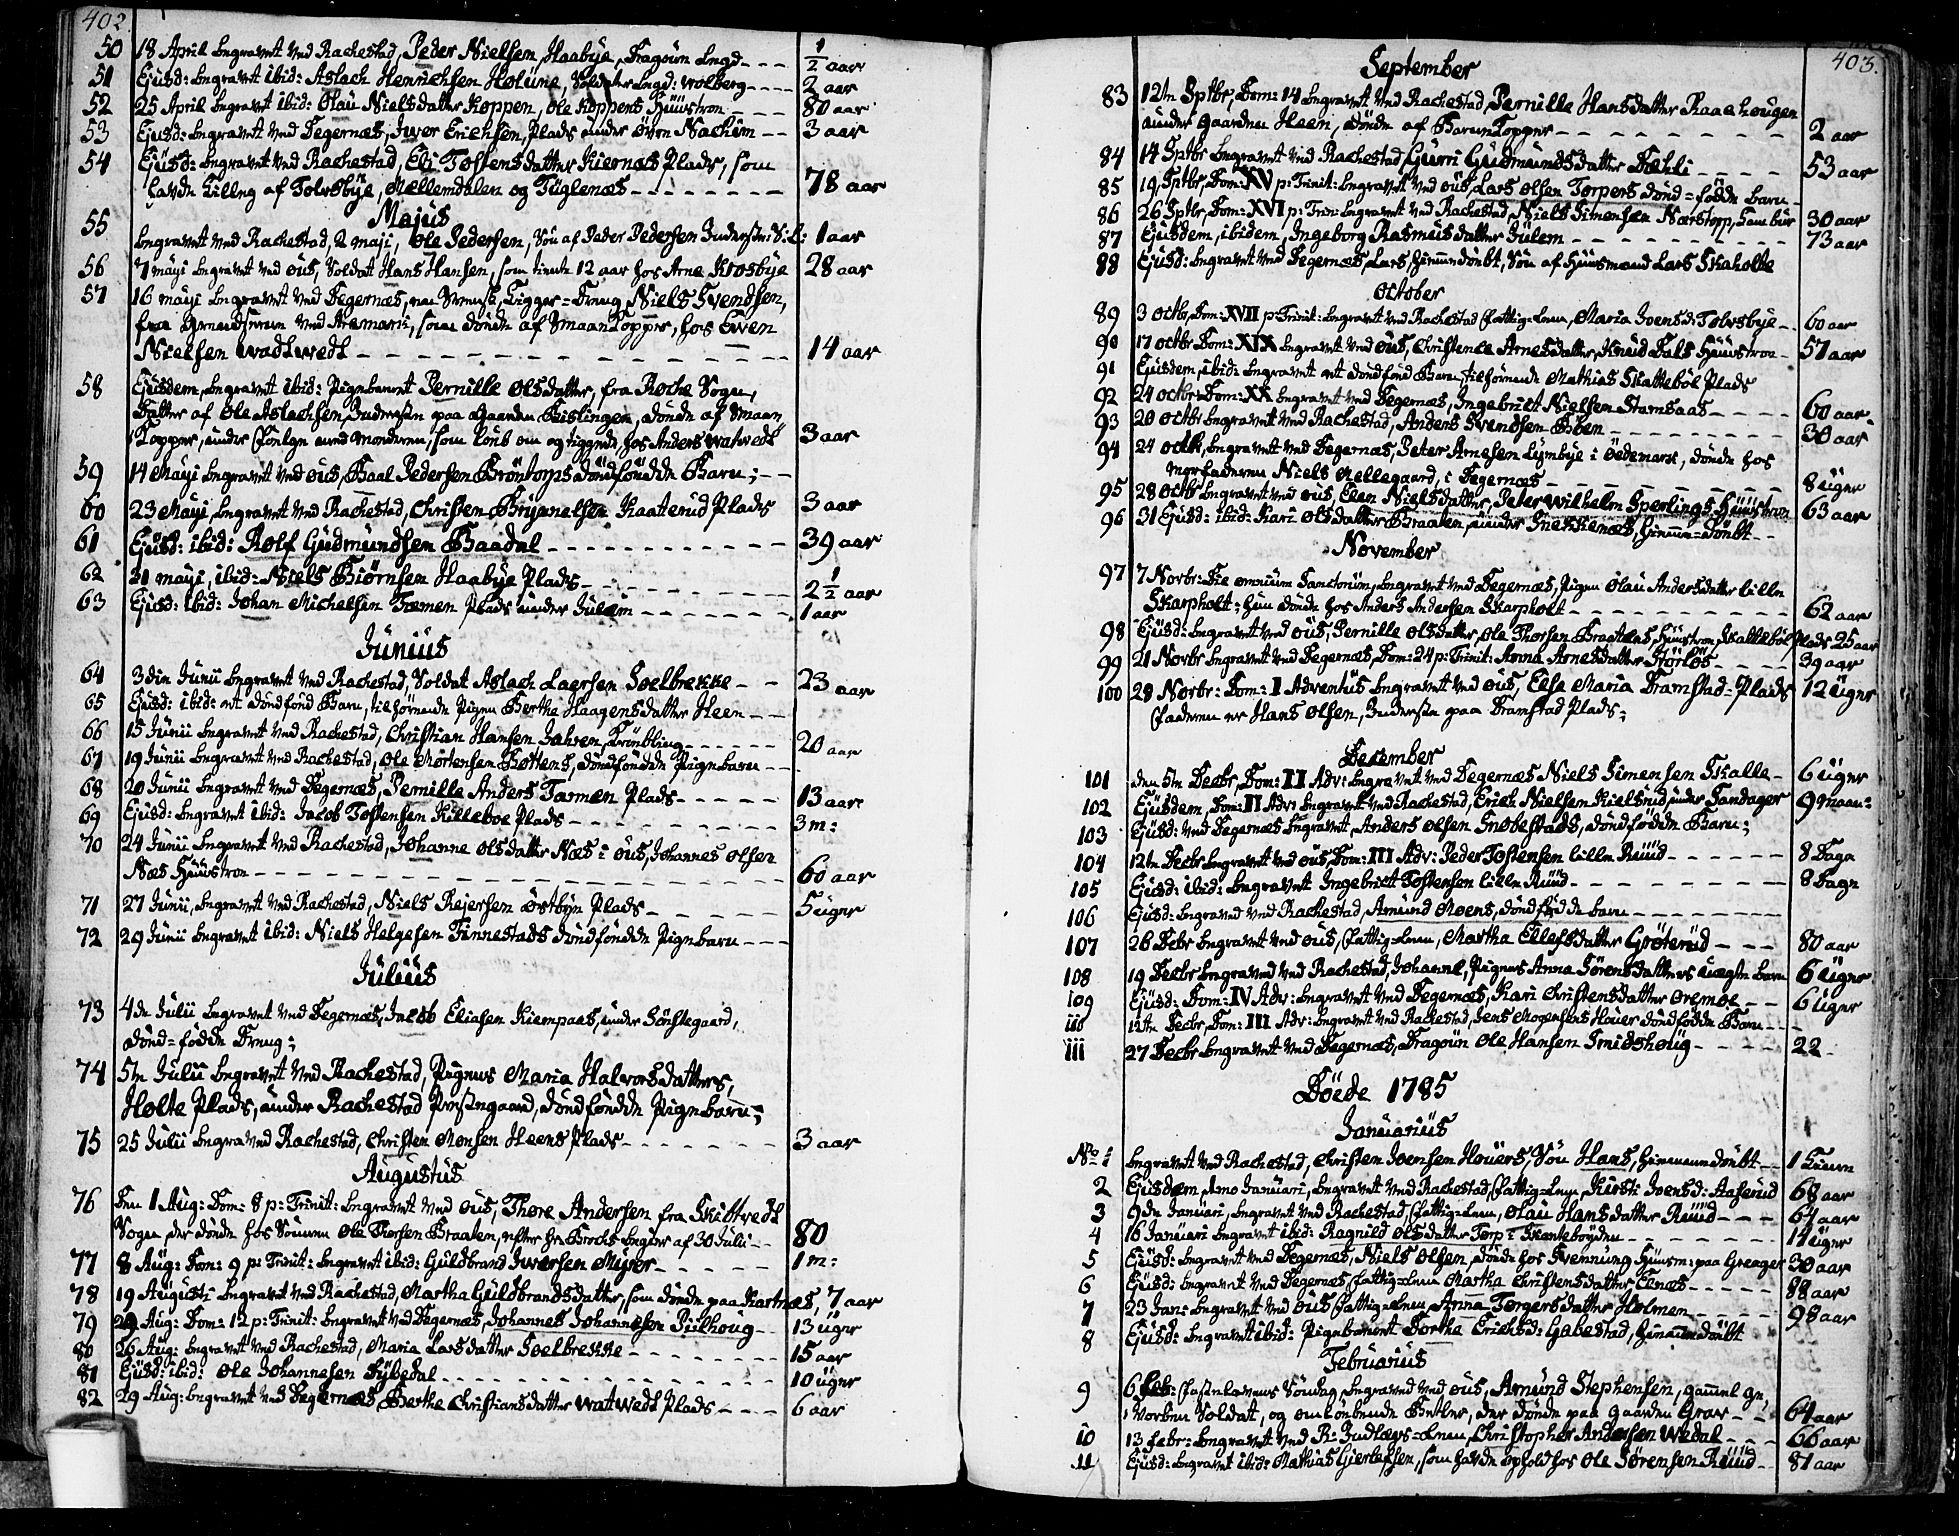 402.
50 18 April begravet ved Rachestad, Peder Nielsen Haabye, Dragoun begd --- ½ aar
51 Ejusd: begravet ibid: Aslach Henrichsen Holüne, Soldater begd: Wolberg ---- 2 aar
52 25 April begravet ibid: Olau Nielsdatter Koppen, Ole Koppens Hüüstroe ---- 80 aar
53 Ejusd: begravet ved Degernæs, Iwer Erichsen, Plads under övre Nachim -- 3 aar
54 Ejusd: begravet ved Rachestad, Eli Tostensdatter Kiernæs Plads, som
havde tilleg af Tolvsbÿe, Mellemdalen og Füglenæs -------- 78 aar
Majus
55 begravet ved Rachestad, 2 maji, Ole Pedersen, Sön af Peder Pedersen Inderste: S:L: 1 aar
56 7 maÿi begravet ved öüs, Soldat Hans Hansen, som tiente 12 aar hos Arne Krosbÿe 28 aar
57 16 maÿi begravet ved Degernæs, en Svensk Tigger-Dreng Niels Svendsen,
fra Grændseren ved Aremark, som döde af SmaaKopper, hos Even
Nielsen Wadtwedt ------------ 14 aar
58 Ejusdem, begravet ibid: Pigebarnet Pernille Olsdatter, fra Roche Sogn,
Datter af Ole Aslachsen, Inderste paa Gaarden Gislingen, döde af Smaa
Kopper, under Følge med Moderen, som löb om og tiggede, hos Anders Watwedt 3 aar
59 14 Maÿi begravet ved öüs, Paal Pedersen Bröntorps dödföedde Barn; --
60 23 Maÿi, begravet ved Rachestad, Christen Brÿnnelsen Kaaterud Plads 3 aar
61 Ejusd: ibid: Rolf Gudmundsen Baadal ---------- 39 aar
62 31 maÿi, ibid: Niels Biørnsen Haabÿe Plads ---- 2½ aar
63 Ejusd: ibid: Johan Michelsen Tæmen Plads under Julem ------ 1 aar
Junius
64 3die Junii begravet ved Rachestad, Soldat Aslach Laersen Soelbrekke -- 23 aar
65 Ejusd: ibid: et dödföd Barn, tilhørende Pigen Berthe Haagensdatter Heen --
66 15 Junii begravet ved Rachestad, Christian Hansen Jahren, Krönbling ----- 20 aar
67 19 Junii begravet ved Rachestad, Ole Mortensen Bottens, dødföedde Pigebarn --
68 20 Junii begravet ved Degernæs, Pernille Anders Tarmen Plads ----- 13 aar
69 Ejusd: begravet ibid: Jacob Tostensen Killeboe Plads --------- 3 m:
70 24 Junii begravet ved Rachestad, Johanne Olsdatter Næs i öüs, Johannes Olsen
Næs Hüüstroe ------------- 60 aar
71 27 Junii, begravet ved Rachestad, Niels Rejersen Østbÿe Plads ----- 5 uger
72 29 Junii begravet ibid: Niels Helgesen Finnestads dödföedde Pigebarn ---
Julius
73 4de Julii begravet ved Degernæs, Jacob Eliasen Kiempaas, under Sönstegaard,
död-fødde Dreng;
74 5te Julii begravet ved Rachestad, Pigens Maria Halvorsdatters,
Holte Plads, under Rachestad Præstegaard, dödföedde Pigebarn;
75 25 Julii begraved Rachestad, Christen Monsen Heens Plads ------ 3 aar
Augustus
76 Den 1 Aug: Dom: 8 p: Trinit: begravet ved öüs, Thore Andersen fra Skibtvedt
Sogn, der döde hos Sönnen Ole Thorsen Braaten, efter hr Brochs begier af 30 Julii -- 80
77 8 Aug: Dom: 9 p: Trinit: begravet ibid: Guldbrand Iwersen Mÿrer ---- 1 m:
78 19 Augusti begravet ved Rachestad, Martha Guldbrandsdatter, som döde paa Kartnæs, 7 aar
79 29 Aug: Dom: 12 p: Trinit: begravet ved Degernæs, Johannes Johannesen Julhoug -- 13 uger
80 26 Aug: begravet ved Rachestad, Maria Larsdatter Soelbrekke ------ 15 aar
81 Ejusd: ibid: Ole Johannesen Dÿbedal ------------ 10 uger
82 29 Aug: begravet ved Degernæs, Berthe Christiansdatter Watwedt Plads ---- 6 aar
403.
September
83 12te Sptbr, Dom: 14 begravet ved Rachestad, Pernille Hansdatter Raaehougen
under Gaarden Heen, döde af BarneKopper -------- 2 aar
84 14 Sptbr begravet ved Rachestad Gurri Gudmundsdatter Dæhli ---- 53 aar
85 19 Sptbr, Dom: XV p: Trinit: begravet ved öüs, Lars Olsen Torpers död-födde barn -
86 26 Sptbr, Dom: XVI p: Trin: begravet ved Rachestad, Niels Simensen Narstorp, Tambur 30 aar
87 Ejusdem, ibidem, Ingeborg Rasmusdatter Julem --------- 73 aar
88 Ejusd: begravet ved Degernæs, Lars, Hiemmedöbt, Sön af Huusmand Lars Skaholte
October
89 3 octbr, Dom: XVII p: Trinit: begravet ved Rachestad Fattig-Lem, Maria Joensd: Tolvsbÿe -- 60 aar
90 17 octbr Dom: XIX begravet ved öüs, Christence Arnesdatter, Knud Dals Hüüstroe -- 57 aar
91 Ejusdem, ibid: begravet et dödföd Barn, tilhörende Mathias Skattebøl Plads
92 24 octbr: Dom: XX begravet ved Degernæs, Ingebrict Nielsen Stamsaas ---- 60 aar
93 20 octbr begravet ved Rachestad, Anders Svendsen Boen --------- 30 aar
94 24 octbr, begravet ved Degernæs, Peter Arnesen Lÿmbÿe i Öedemark, döde hos
Morfaderen Niels Mellegaard, i Degernæs --------- 8 üger
95 28 octbr begravet ved öüs, Elen Nielsdatter, Peter Wilhelm Sperlings Hüüstroe 63 aar
96 31 Ejusd: ibid: Kari Olsdatter Braaten, under Snekkenæs, Hiemme-Döbt --
November
97 7 Novbr: Die omnium Sanctorum, begravet ved Degernæs, Pigen Olau Andersdatter lille
Skarpholt; hun döde hos Anders Andersen Skarpholt --------- 62 aar
98 Ejusd: begravet ved öüs, Pernille Olsdatter, Ole Thorsen Bragtens, Hüüstroe, Skattebøl Plads 25 aar
99 21 Novbr begravet ved Degernæs, Dom: 24 p: Trinit: Anna Arnesdatter Störlös ---- 39 aar
100 28 Novbr: Dom: I Adventus begravet ved öüs, Else Maria Dramstad-Plads 12 üger
Faderen er Hans Olsen, Inderste paa Dramstad Plads;
December
101 den 5te Decbr, Dom: II Adv: begravet ved Degernæs Niels Simensen Skalle - 6 üger
102 Ejusdem, Dom: II Adv: begravet ved Rachestad, Erich Nielsen Kielsrud under Tandager 9 maan:
103 Ejusd: ved Degernæs begravet, Anders Olsen Snobestads, dödfödde Barn;
104 12te Decbr begravet ved öüs, Dom: III Adv: Peder Tostensen lille Rüüd ------ 8 Dage
105 Ejusd: ibid: begravet Ingebrict Tostensen lille Rüüd ---------- 8 Dage
106 Ejusd: begraved ved Rachestad, Amund Moens, dödfödde barn --------
107 26 Debr begravet ved öüs, Fattig-Lem, Martha Ellefsdatter Grøterüd --- 80 aar
108 19 Decbr begraved ved Rachestad, Johanne, Pigens Anna Sörensdatters uægte barn 6 üger
109 Ejusd: Dom: IV Adv: begravet ved Degernæs, Kari Christensdatter Oremoe -- 6 üger
110 12te Decbr, Dom: III Adv: begravet ved Rachestad, Jens Mogensens Houer dödfödde Barn ---
111 27 Decbr begravet ved Degernæs, Dragoün Ole Hansen Smidshoüg ----- 22 -
Döede 1785
Januarius
No 1 begravet ved Rachestad, Christen Joensen Höüers, Sön Hans, Hiemmedöbt -- 1 Time
2 Ejusdem, 2mo Januari, begravet ved Rachestad, Fattig-Lem, Kirsti Joensd: Aaserud 68 aar
3 9de Januari, begravet ved Rachestad, Fattig-Lem, Olau Hansdatter Rüüd --- 64 aar
4 16 Januari begravet ibid: Ragnild Olsdatter Torp i Skantebøÿden ------- 11 üger
5 Ejusd: begravet ved Degernæs, Niels Olsen, döde hos Svennung Huusm: paa Greager 30 aar
6 Ejusd: begravet ved Degernæs, Fattig-Lem Martha Christensdatter Elnæs ----- 88 aar
7 23 Jan: begravet ved öüs Fattig-Lem, Anna Torgersdatter Holmen ----- 98 aar
8 Ejusd: begravet ibid: Pigebarnet Dorthe Erichsd: Gabestad, Hiemmedöbt
Februarius
9 6 Feb: Fastelavens Söndag begraved ved öüs, Amund Stephensen, gammel ge,
Vorben Soldat, og omlöbende Betler, der döde paa Gaarden Grav -- 64 aar
10 13 Febr: begravet ved R: Indlægs-Lem, Christopher Andersen Wedal --- 66 aar
11 Ejusd: begravet ibid: Mathias Giertsen, som havde ophold hos Ole Sørensen Rüüd - 81 aar